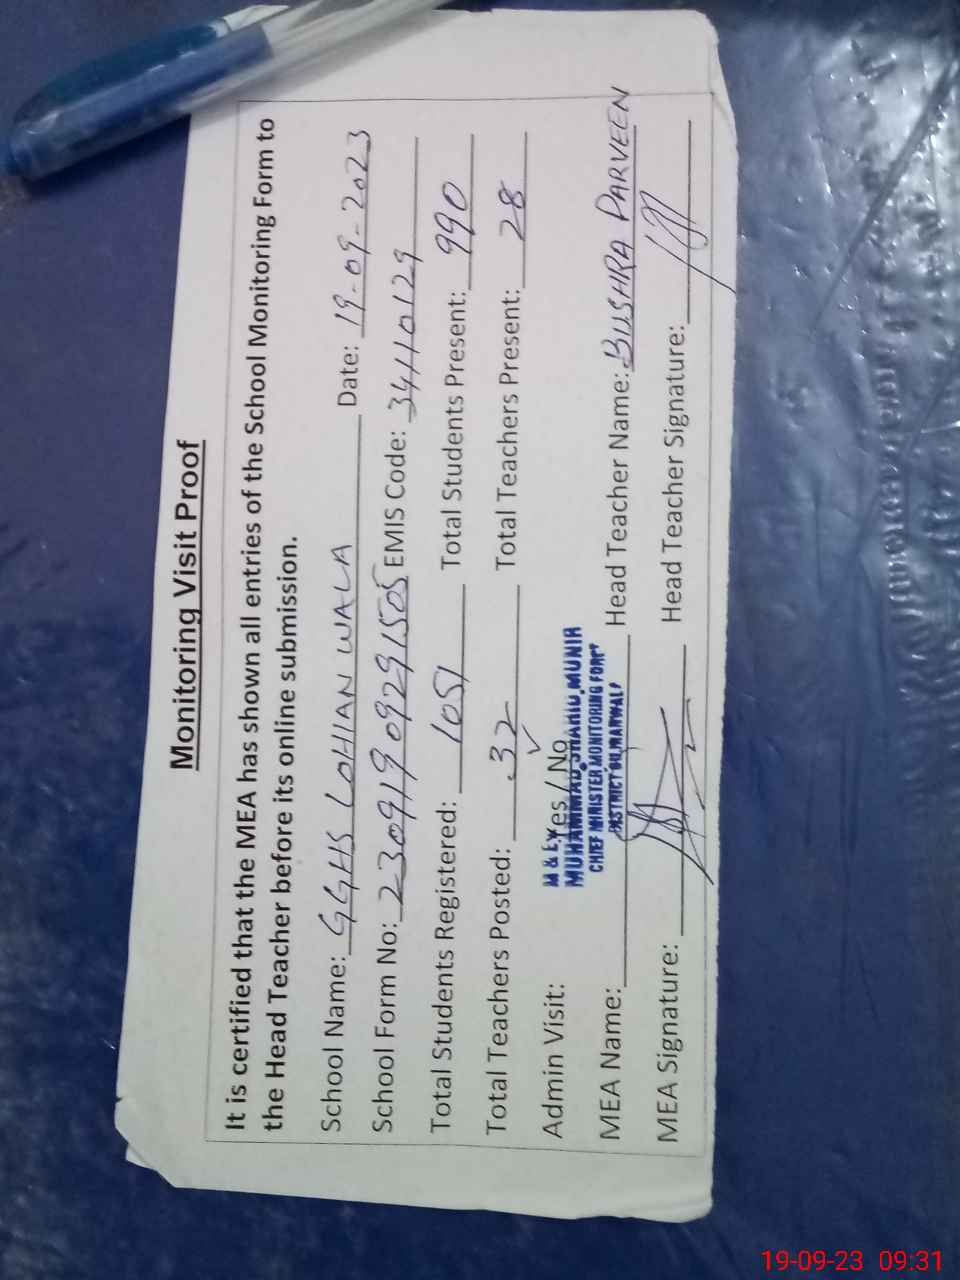 Monitoring Visit Proof
It is certified that the MEA has shown all entries of the School Monitoring Form to
the Head Teacher before its online submission.
School Name: GGHS LOHIAN WALA Date: 19-09-2023
School Form No: 23091909291505 EMIS Code: 34110129
Total Students Registered: 1051 Total Students Present: 990
Total Teachers Posted: 32 Total Teachers Present: 28
Admin Visit: Yes / No
M & E
MUHAMMAD SHAHID MUNIR
CHIEF MINISTER MONITORING FORCE
DISTRICT GUJRANWALA
MEA Name: Head Teacher Name: BUSHRA PARVEEN
MEA Signature: Head Teacher Signature:
19-09-23 09:31